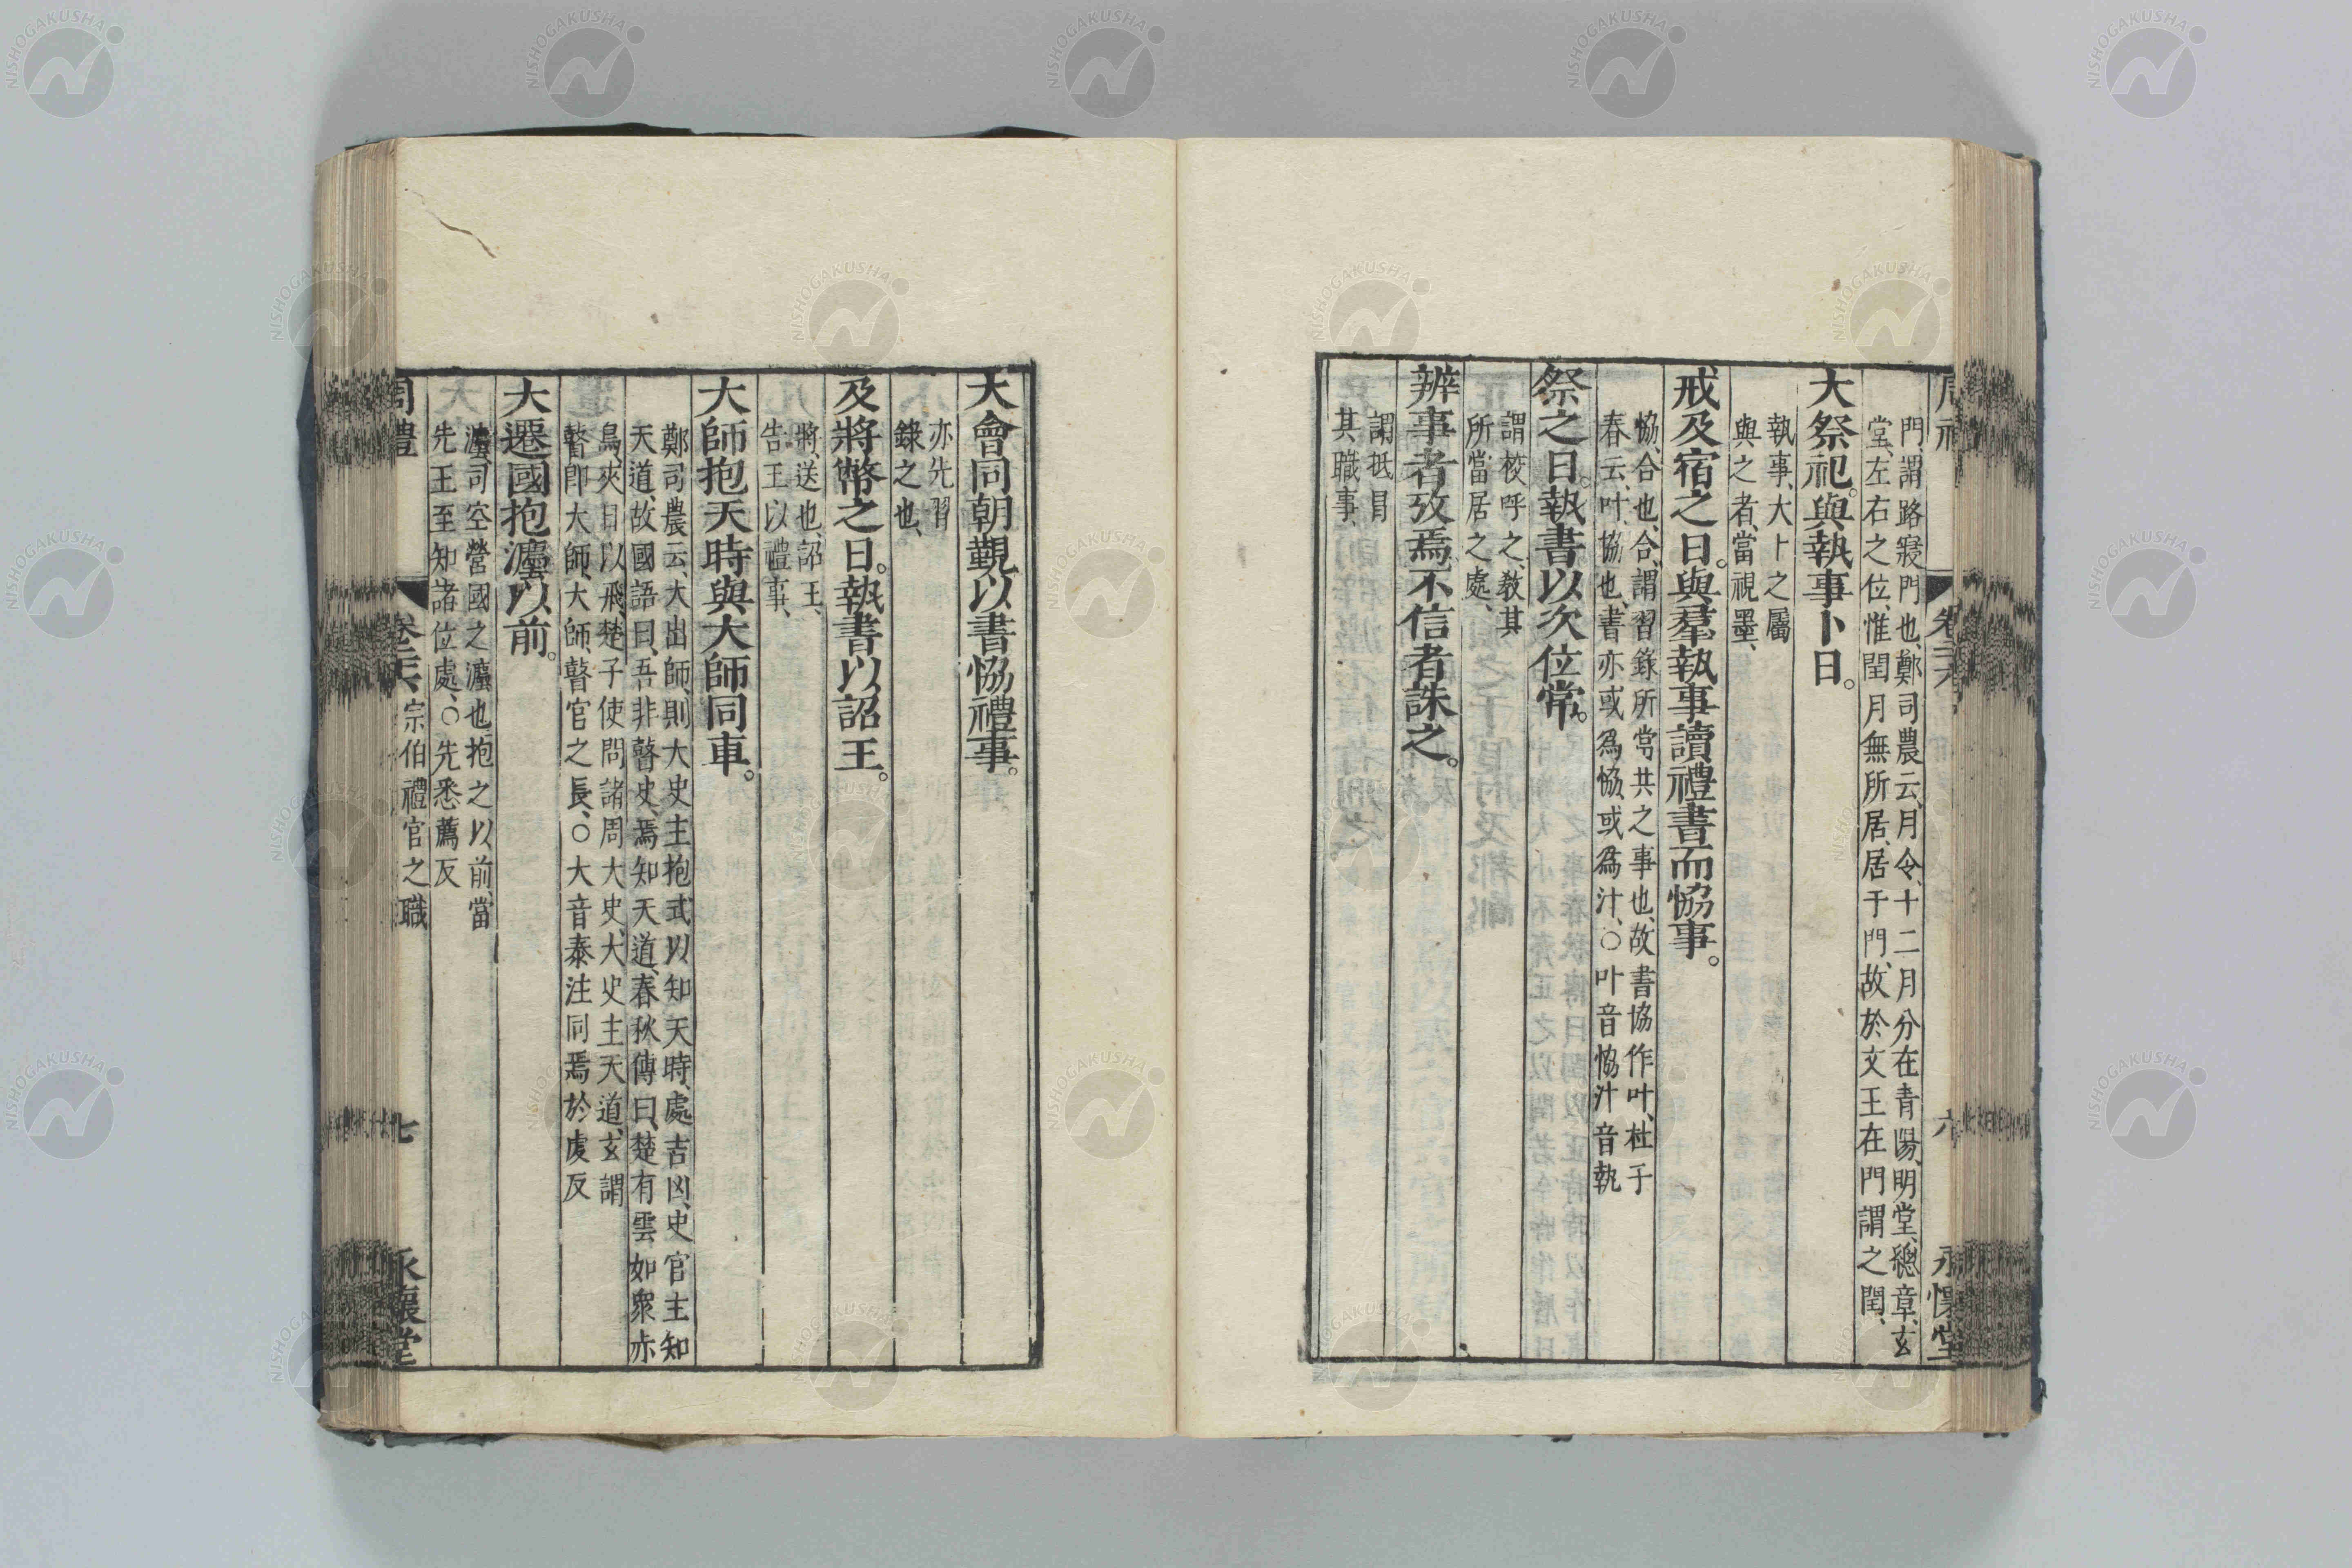 門、謂路寢門也、鄭司農云、月令、十二月分在青陽、明堂、總章、玄
堂、左右之位、惟閏月無所居、居于門、故於文王在門謂之閏、
大祭祀。與執事卜日。
執事、大卜之屬
與之者、當視墨、
戒及宿之日。與羣執事讀禮書而恊事。
恊、合也、合、謂習錄所當共之事也、故書協作叶、杜子
春云、叶、協也、書亦或爲恊、或爲汁、○叶音恊汁音執
祭之日。執書以次位常。
謂校呼之、教其
所當居之處、
辨事者攷焉不信者誅之。
謂抵冒
其職事、
大會同朝覲以書恊禮事。
亦先習
錄之也、
及將幣之日。執書以詔王。
將、送也、詔王、
告王以禮事、
大師抱天時與大師同車。
鄭司農云、大出師、則大史主抱式以知天時、處吉凶、史官主知
天道、故國語曰、吾非瞽史、焉知天道、春秋傳曰、楚有雲如衆赤
鳥、夾日以飛、楚子使問諸周大史、大史主天道、玄謂
瞽卽大師、大師、瞽官之長、○大音泰注同焉於虔反
大遷國抱灋以前。
灋、司空營國之灋也抱之以前、當
先王至知諸位處、○先悉薦反
周禮 卷二六 宗伯禮官之職 七 永懷堂
卷二六 六 永懷堂
NISHOGAKUSHA